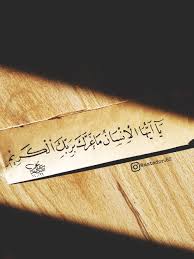 يَا أَيُّهَا الْإِنْسَانُ مَا غَرَّكَ بِرَبِّكَ الْكَرِيمِ